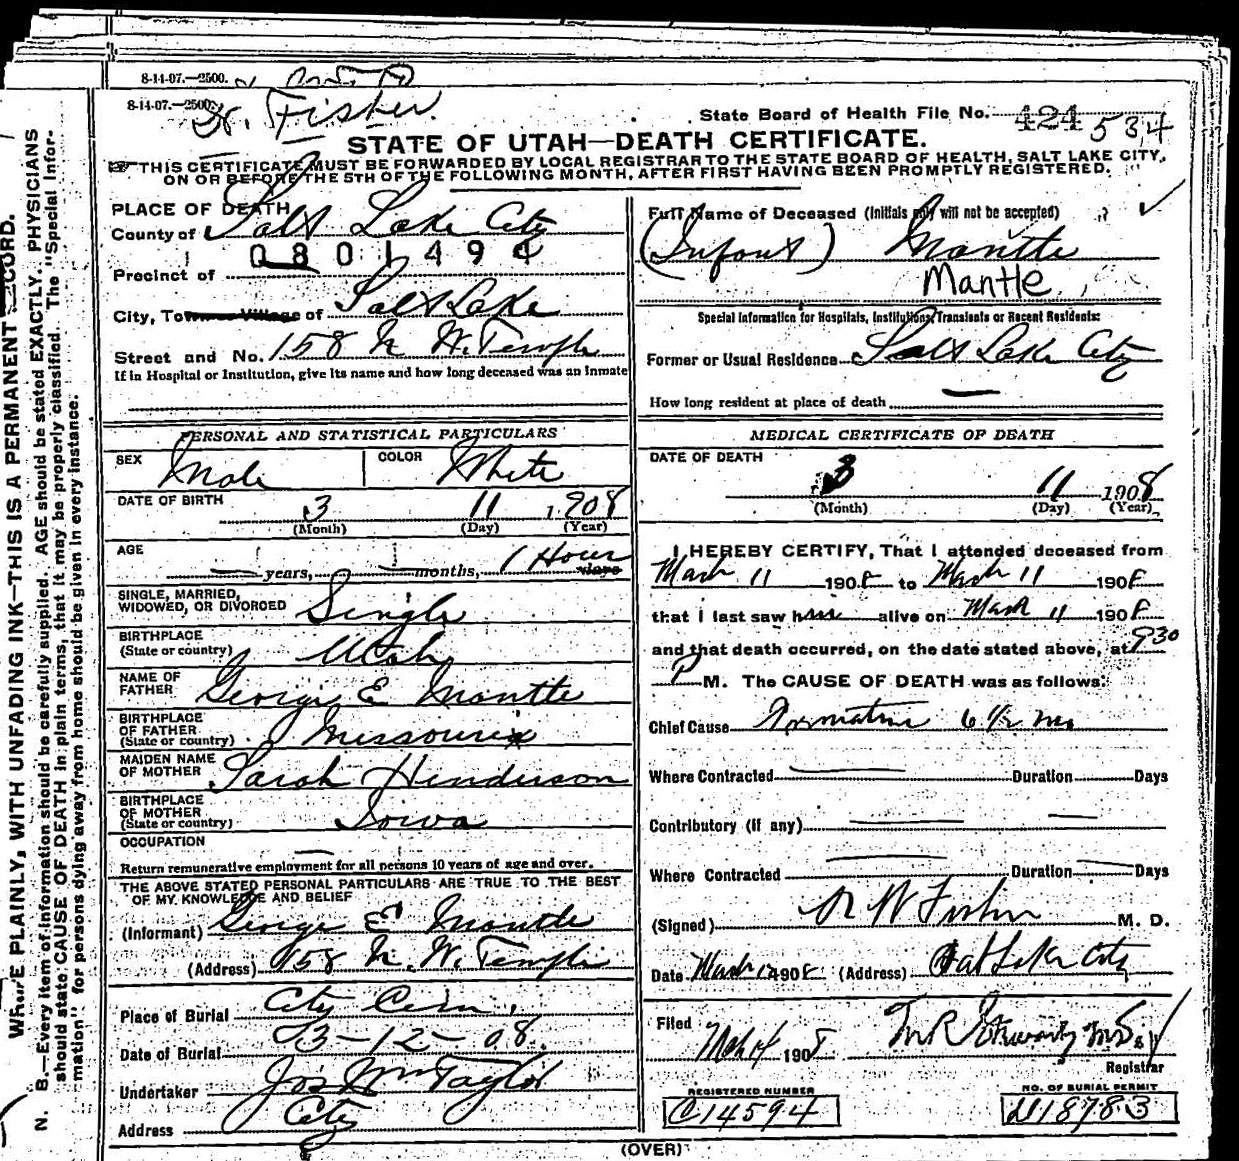 8-14-07.—2500.
8-14-07.—2500.
Fisher.
State Board of Health File No. 424 534
STATE OF UTAH—DEATH CERTIFICATE.
THIS CERTIFICATE MUST BE FORWARDED BY LOCAL REGISTRAR TO THE STATE BOARD OF HEALTH, SALT LAKE CITY,
ON OR BEFORE THE 5TH OF THE FOLLOWING MONTH, AFTER FIRST HAVING BEEN PROMPTLY REGISTERED.
WRITE PLAINLY, WITH UNFADING INK—THIS IS A PERMANENT RECORD.
N. B.—Every item of information should be carefully supplied. AGE should be stated EXACTLY. PHYSICIANS
should state CAUSE OF DEATH in plain terms, that it may be properly classified. The "Special Infor-
mation" for persons dying away from home should be given in every instance.
PLACE OF DEATH
County of Salt Lake City
0801494
Precinct of
City, Town or Village of Salt Lake
Street and No. 158 N W. Temple
If in Hospital or Institution, give its name and how long deceased was an inmate
PERSONAL AND STATISTICAL PARTICULARS
SEX Male COLOR White
DATE OF BIRTH 3 11 1908
(Month) (Day) (Year)
AGE — years, — months, 1 Hour days
SINGLE, MARRIED,
WIDOWED, OR DIVORCED Single
BIRTHPLACE
(State or country) Utah
NAME OF
FATHER George E Mantle
BIRTHPLACE
OF FATHER
(State or country) Missouri
MAIDEN NAME
OF MOTHER Sarah Henderson
BIRTHPLACE
OF MOTHER
(State or country) Iowa
OCCUPATION —
Return remunerative employment for all persons 10 years of age and over.
THE ABOVE STATED PERSONAL PARTICULARS ARE TRUE TO THE BEST
OF MY KNOWLEDGE AND BELIEF
(Informant) George E Mantle
(Address) 158 N. W. Temple
Place of Burial City Cem.
Date of Burial 3-12-08.
Undertaker Jos Wm Taylor
Address City
Full Name of Deceased (Initials only will not be accepted)
(Infant) Mantle
Mantle
Special Information for Hospitals, Institutions, Transients or Recent Residents:
Former or Usual Residence Salt Lake City
How long resident at place of death —
MEDICAL CERTIFICATE OF DEATH
DATE OF DEATH
3 11 1908
(Month) (Day) (Year)
I HEREBY CERTIFY, That I attended deceased from
March 11 1908 to March 11 1908
that I last saw him alive on March 11 1908
and that death occurred, on the date stated above, at 9 30
P M. The CAUSE OF DEATH was as follows:
Chief Cause 6 1/2 mo
Where Contracted — Duration Days
Contributory (if any) — —
Where Contracted — Duration — Days
(Signed) R W Fisher M. D.
Date March 1908 (Address) Salt Lake City
Filed Mch 14 1908
Registrar
REGISTERED NUMBER
C14594
NO. OF BURIAL PERMIT
D18783
(OVER)